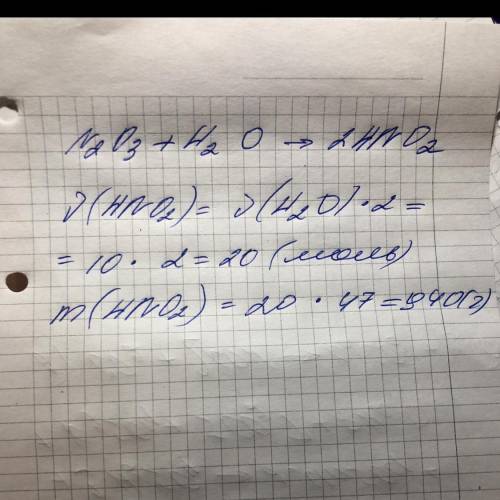 N₂O₃ + H₂O → 2HNO₂
ν(HNO₂) = ν(H₂O) · 2 =
= 10 · 2 = 20 (моль)
m(HNO₂) = 20 · 47 = 940(г)